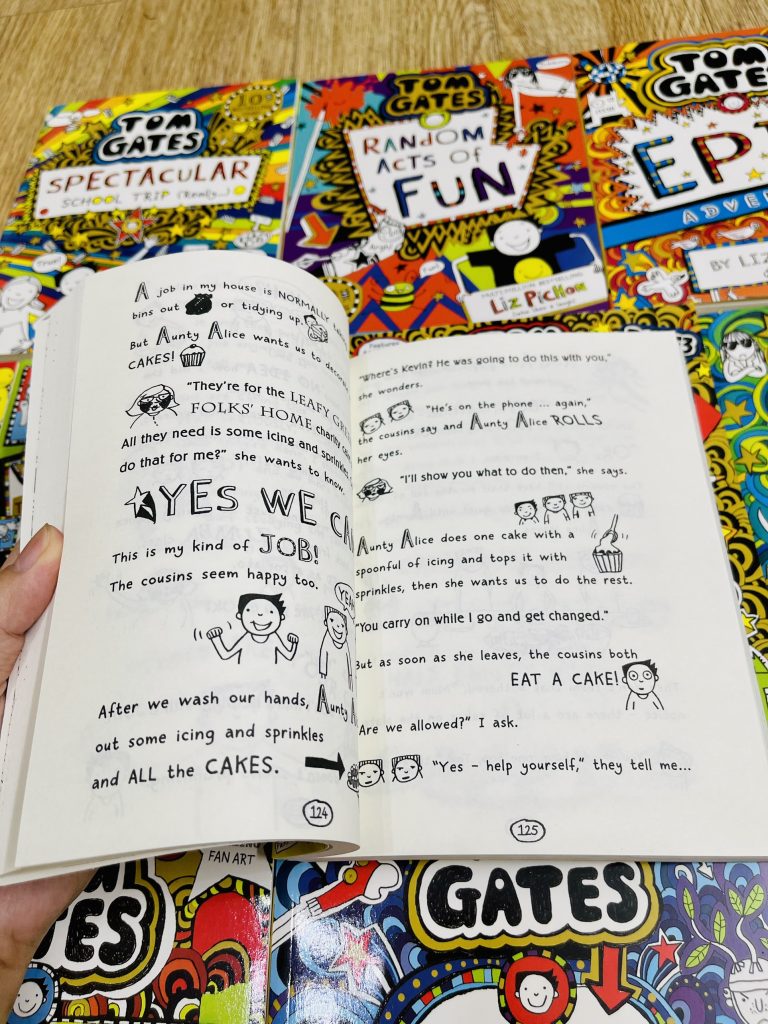 TOM
GATES
SPECTACULAR
SCHOOL TRIP (Really...)
TOM
GATES
RANDOM
ACTS of
FUN
LIZ PICHON
TOM
GATES
BY LIZ
A job in my house is NORMALLY
bins out or tidying up.
But Aunty Alice wants us to
CAKES!
"They're for the LEAFY
FOLKS' HOME charity
All they need is some icing and sprinkles.
do that for me?" she wants to know.
YES WE
This is my kind of JOB!
The cousins seem happy too.
YEAH
After we wash our hands, Aunty
out some icing and sprinkles
and ALL the CAKES.
124
"Where's Kevin? He was going to do this with you,"
she wonders.
"He's on the phone ... again,"
the cousins say and Aunty Alice ROLLS
her eyes.
"I'll show you what to do then," she says.
Aunty Alice does one cake with a
spoonful of icing and tops it with
sprinkles, then she wants us to do the rest.
"You carry on while I go and get changed."
But as soon as she leaves, the cousins both
EAT A CAKE!
Are we allowed?" I ask.
"Yes - help yourself," they tell me...
125
FAN ART
GATES